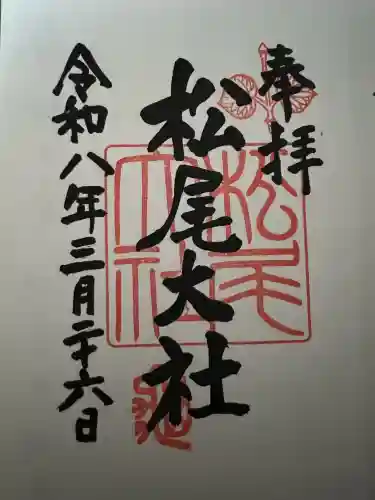 奉拝
松尾大社
松尾大社
令和八年三月二十六日